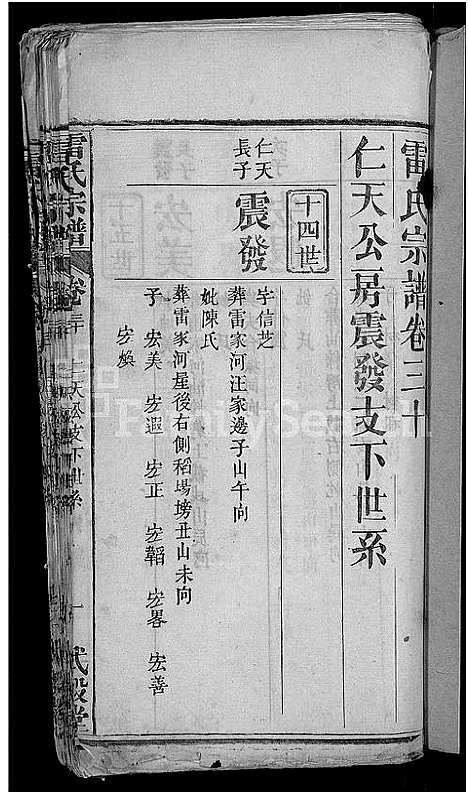 雷氏宗譜卷三十
仁天公房震發支下世系
十四世
仁天
長子
震發
字信芝
葬雷家河汪家邊子山午向
妣陳氏
葬雷家河屋後右側稻場塝丑山未向
子 宏美 宏遐 宏正 宏韜 宏畧 宏善
宏煥
雷氏宗譜 卷三十 仁天公支下世系 一
FamilySearch